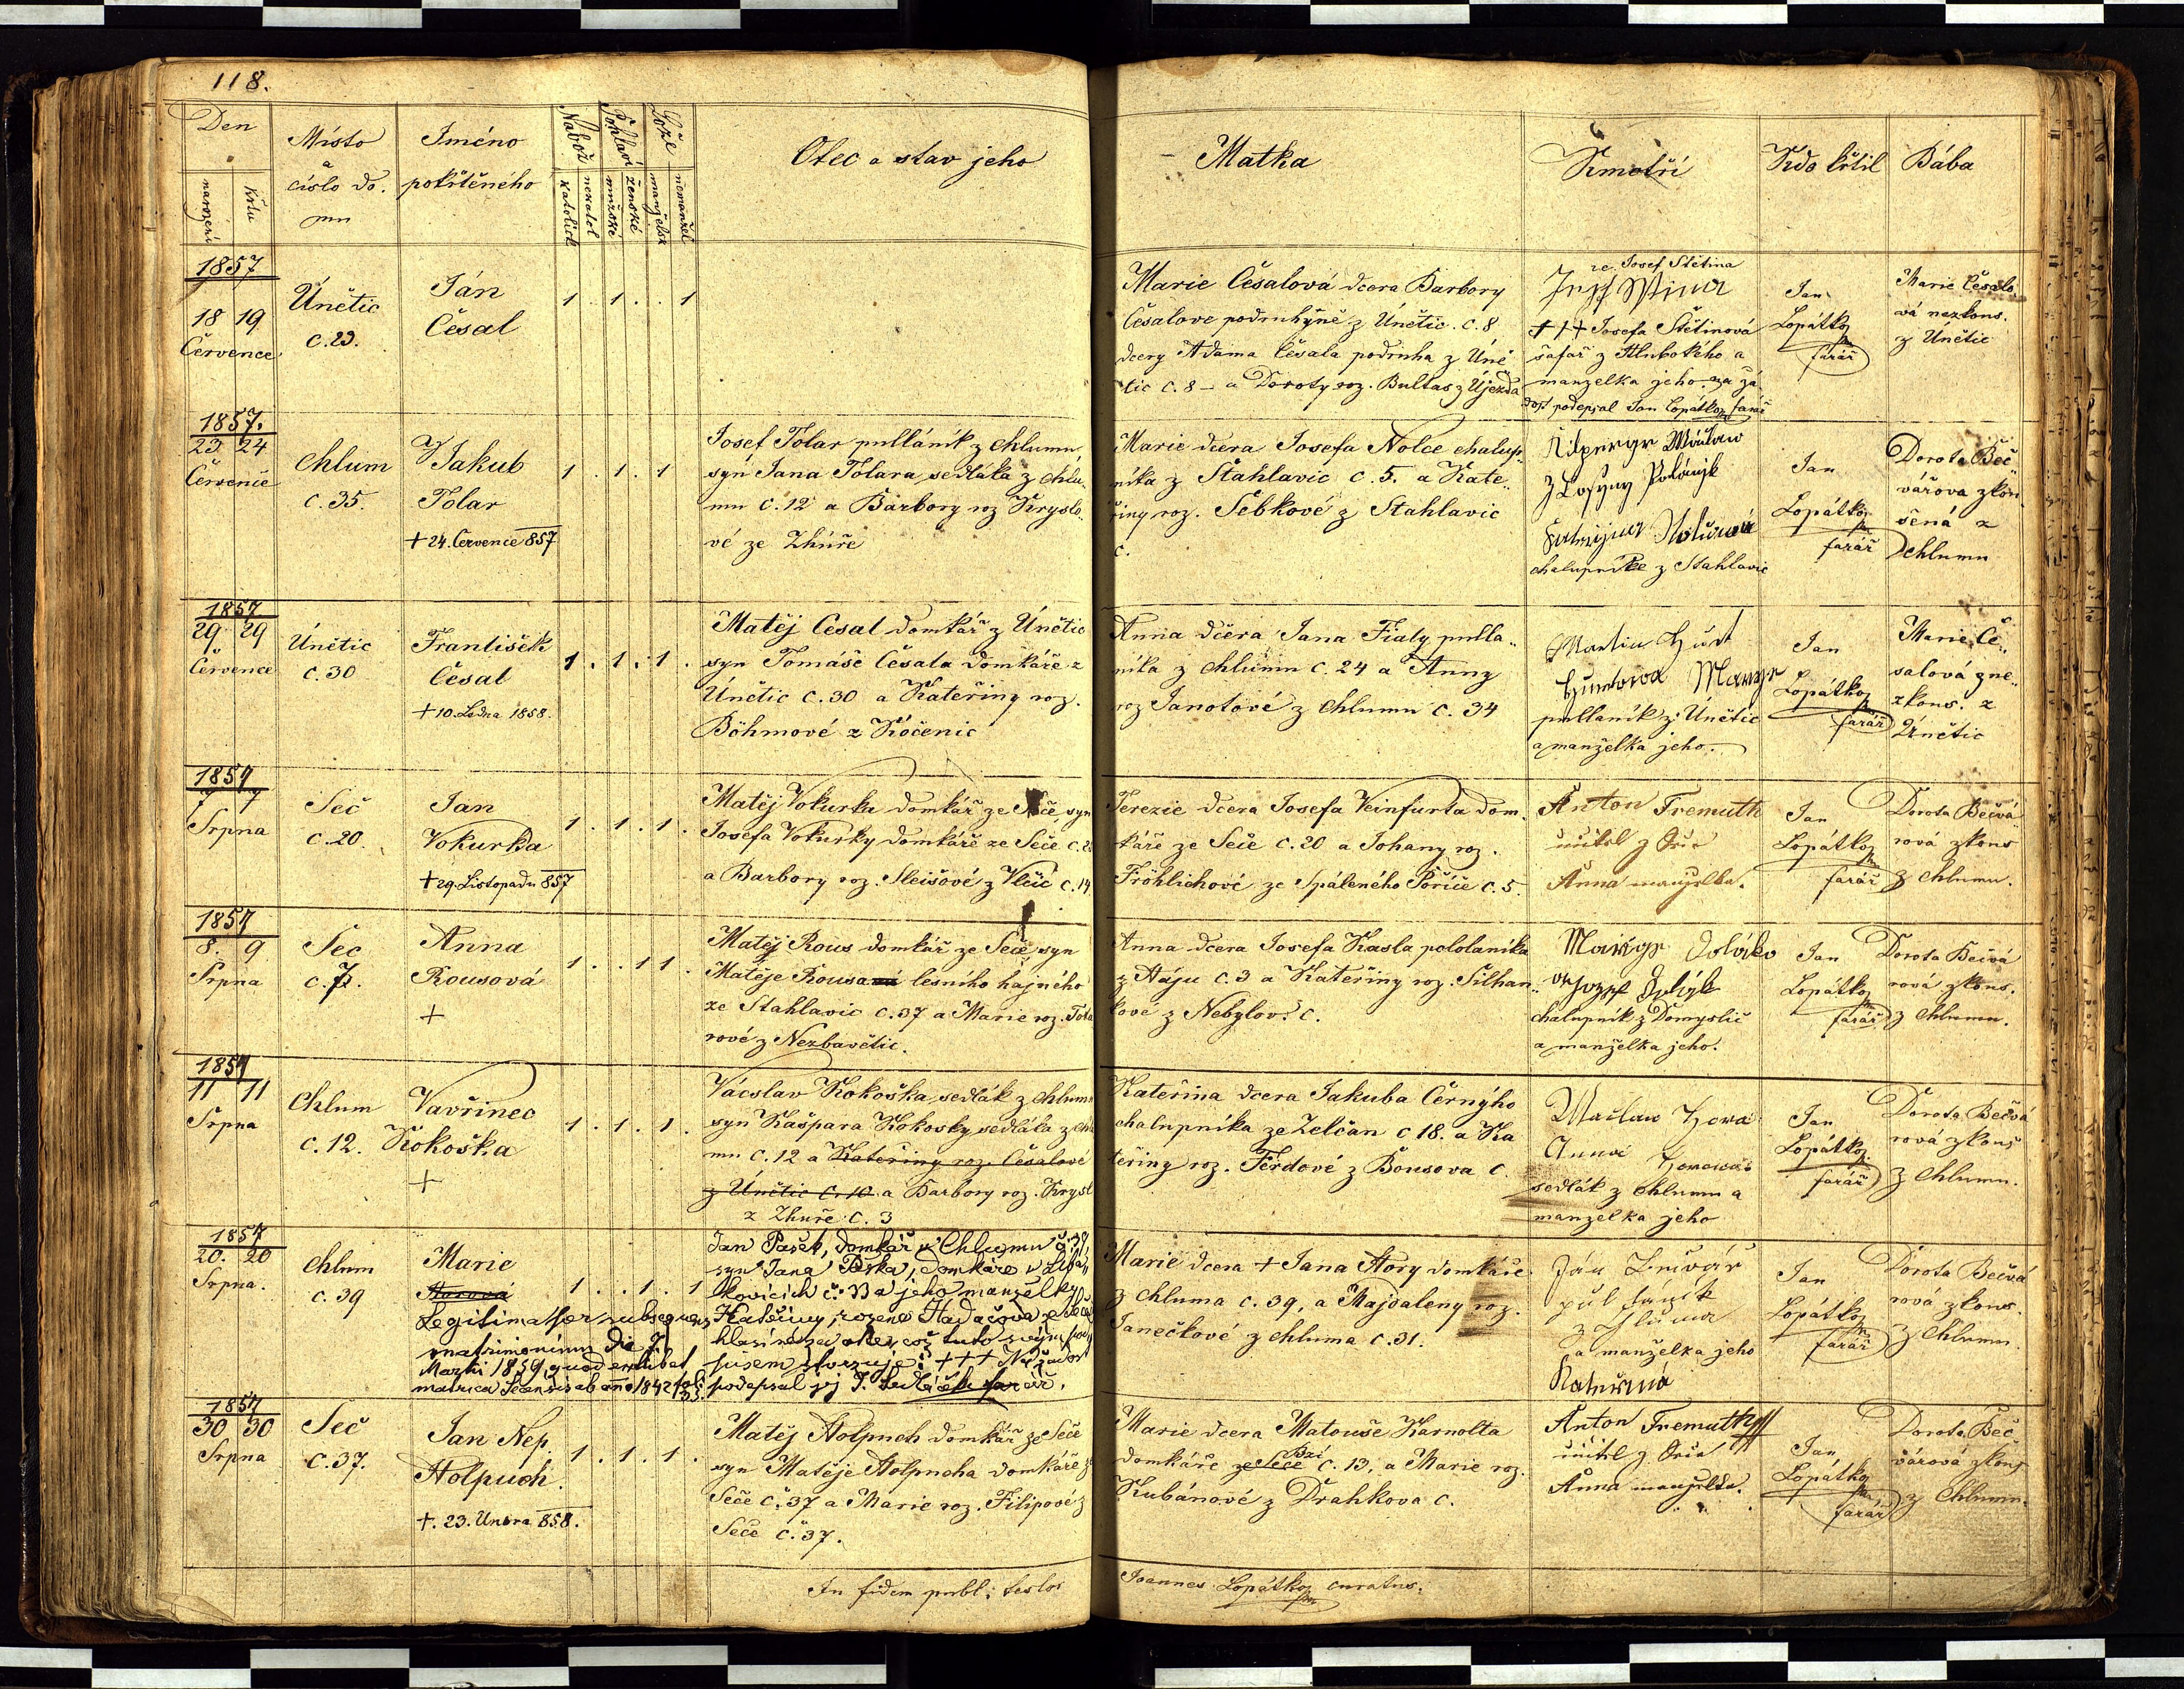 118.
Den
narození
křtu
Místo
a
číslo do.
mu
Jméno
pokřtěného
Nabož
katolick
nekatol
Pohlaví
mužské
ženské
Lože
manželsk
nemanžel
Otec a stav jeho
Matka
Kmotři
Kdo křtil
Bába
1857
18 19
Července
Únětic
C. 23.
Ján
Česal
1 . 1 . . 1
Marie Česalová dcera Barbory
Česalove podruhyně z Únětic. C. 8
dcery Adama Česala podruha z Úně
tic C. 8 – a Doroty roz. Bultas z Újezda
Josef Stětina
+++ Josefa Štětinová
šafař z Hlubokého a
manzelka jeho. za žá
dost podepsal Jan Lopátko farář
Jan
Lopátko
farář
Marie Česalo
vá nezkous.
z Únětic
1857.
23 24
Července
Chlum
C. 35.
Jakub
Tolar
+ 24. Července 857
1 . 1 . 1
Josef Tolar pullánik z Chlumu,
syn Jana Tolara sedláka z Chlu,
mu C. 12 a Barbory roz Kryslo..
vé ze Zhúře
Marie dcera Josefa Nolce chalup..
níka z Štahlavic C. 5. a Kate..
řiny roz. Šebkové z Stahlavic
C.
chalupníce z Stahlavic
Jan
Lopátko
farář
Dorota Beč
vářova zkou
šená z
Chlumu
1857
29 29
Července
Únětic
C. 30
František
Česal
+ 10. Ledna 1858.
1 . 1 . 1 .
Matěj Česal domkář z Únětic
syn Tomáše Česala domkáře z
Únětic C. 30 a Kateřiny roz.
Böhmové z Kočenic
Anna dcera Jana Fialy pulla..
níka z Chlumu C. 24 a Anny
roz Janotové z Chlumu C. 34
pullaník z Únětic
a manželka jeho.
Jan
Lopátko
farář
Marie Če..
salová z ne..
zkous. z
Únětic
1857
7 7
Srpna
Seč
C. 20.
Jan
Vokurka
+ 29. Listopadu 857
1 . 1 . 1 .
Matěj Vokurka domkář ze Seče, syn
Josefa Vokurky domkáře ze Seče C. 2
a Barbory roz. Sleišové z Vlčic C. 14
Terezie dcera Josefa Veinfurta dom.
káře ze Seče C. 20 a Johany roz.
Fröhlichové ze Spáleného Poříče C. 5.
Anton Fremuth
učitel z
Anna manželka.
Jan
Lopátko
farář
Dorota Bečvá
rová zkous
z Chlumu.
1857
8. 9
Srpna
Seč
C. 7.
Anna
Rousová
+
1 . . 1 1 .
Matěj Rous domkář ze Seče syn
Matěje Rousa lesního hajného
ze Stahlavic C. 37 a Marie roz. Tola
rové z Nezbavětic.
Anna dcera Josefa Kasla pololaníka
z Háju C. 3 a Kateřiny roz. Silhan..
kové z Nebylov? C.
chalupník z Domyslic
a manželka jeho.
Jan
Lopátko
farář
Dorota Bečvá
rová zkous.
z Chlumu.
1857
11 11
Srpna
Chlum
C. 12.
Vavřinec
Kokoška
+
1 . 1 . 1 .
Václav Kokoška, sedlák z Chlumu
syn Kašpara Kokosky sedláka z Chlu
mu C. 12 a Kateřiny roz. Česalové
z Únětic C. 10 a Barbory roz. Krysl
z Zhuře C. 3
Kateřina dcera Jakuba Černýho
chalupníka ze Želčan C 18. a Ka
teřiny roz. Ferdové z Bousova C.
sedlák z Chlumu a
manzelka jeho
Jan
Lopátko
farář
Dorota Bečvá
rová zkous
z Chlumu.
1857
20. 20
Srpna.
Chlum
C. 39
Marie
Horová
1 . . 1 . 1
Legitimat per subsequens
matrimonium die 7.
Martii 1859, quod exhibet
matrica Secensis ab anno 1842 fol:
Jan Pašek, domkář v Chlumu č. 39
syn Jana Paška, domkáře v
kovicích č. 33 a jeho manželky
Kateřiny, rozené Hadačova z
hlasí se za otce, což tuto svým pod
pisem stvrzuje: +++ Na žádost
podepsal jej J. Sedláček farář.
Marie dcera + Jana Hory domkáře
z Chluma C. 39, a Majdaleny roz.
Janečkové z Chluma C. 31.
a manželka jeho
Kateřina
Jan
Lopátko
farář
Dorota Bečvá
rová zkous.
z Chlumu
1857
30 30
Srpna
Seč
C. 37.
Jan Nep.
Holpuch.
+. 23. Unora 858.
1 . 1 . 1 .
Matěj Holpuch domkář ze Seče
syn Matěje Holpucha domkáře z
Seče č. 37 a Marie roz. Filipové z
Seče č. 37.
Marie dcera Matouše Karnolta
domkáře ze Seče Bzí C. 13, a Marie roz.
Kubánové z Drahkova C.
Anton Fremuth
učitel z
Anna manželka.
Jan
Lopátko
farář
Dorota Beč
várová zkous
z Chlumu.
In fidem publ: testor
Joannes Lopátko curatus.